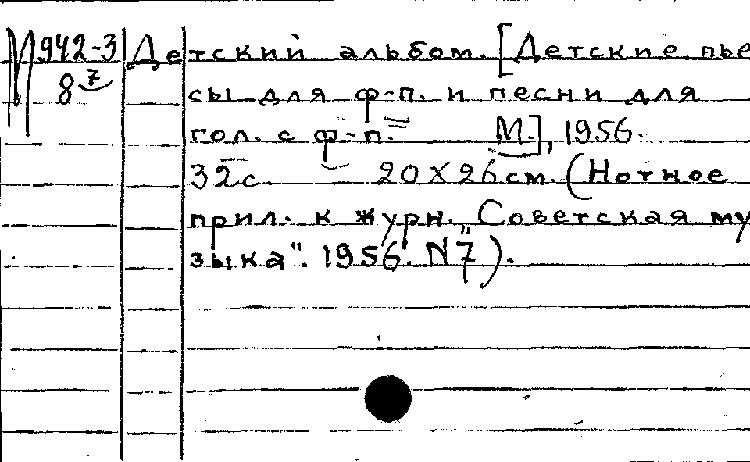 М 942-3 Детский альбом. [Детские пье
8 7 сы для ф-п. и песни для
гол. с ф-п.= М.], 1956.
32 с 20 X 26 см. (Нотное
прил. к журн. Советская му
зыка". 1956. N 7).